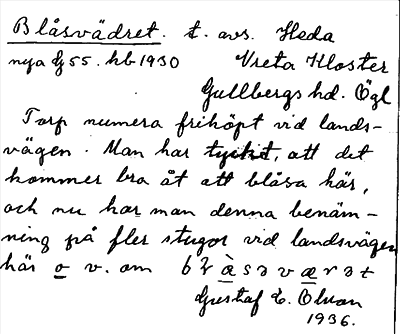 Blåsvädret. t. avs. Heda
nya Ej 55. hb 1930 Vreta Kloster
Gullbergs hd. Ögl
Torp numera friköpt vid lands-
vägen. Man har tyckt, att det
kommer bra åt att blåsa här,
och nu har man denna benäm-
ning på fler stugor vid landsvägen
här o v. om
Gustaf E. Olson
1936.